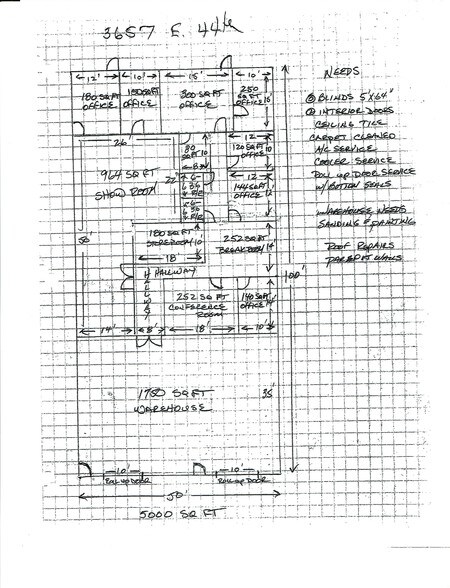 3657 E. 44th
12' 10' 15' 10'
180 SQFT OFFICE
150 SQFT OFFICE
300 SQFT OFFICE
250 SQ FT OFFICE
NEEDS
BLINDS 5'X64"
INTERIOR DOORS
CEILING TILE
CARPET CLEANED
A/C SERVICE
COOLER SERVICE
ROLL UP DOOR SERVICE
W/ BOTTOM SEALS
WAREHOUSE NEEDS
SANDING & PAINTING
ROOF REPAIRS
PARAPET WALLS
26
80 SQFT 10
8
12
120 SQFT 10
OFFICE
964 SQ FT
SHOW ROOM
22'
12
144 SQFT 12
OFFICE
50'
180 SQ FT
STOREROOM 10
18'
252 SQFT
BREAKROOM 14
HALLWAY
HALLWAY
100'
252 SQ FT
CONFERENCE
ROOM
140 SQFT
OFFICE 14
14' 8' 18' 10'
1750 SQ FT
WAREHOUSE
35'
10'
Roll up Door
10'
Roll up Door
50'
5000 SQ FT